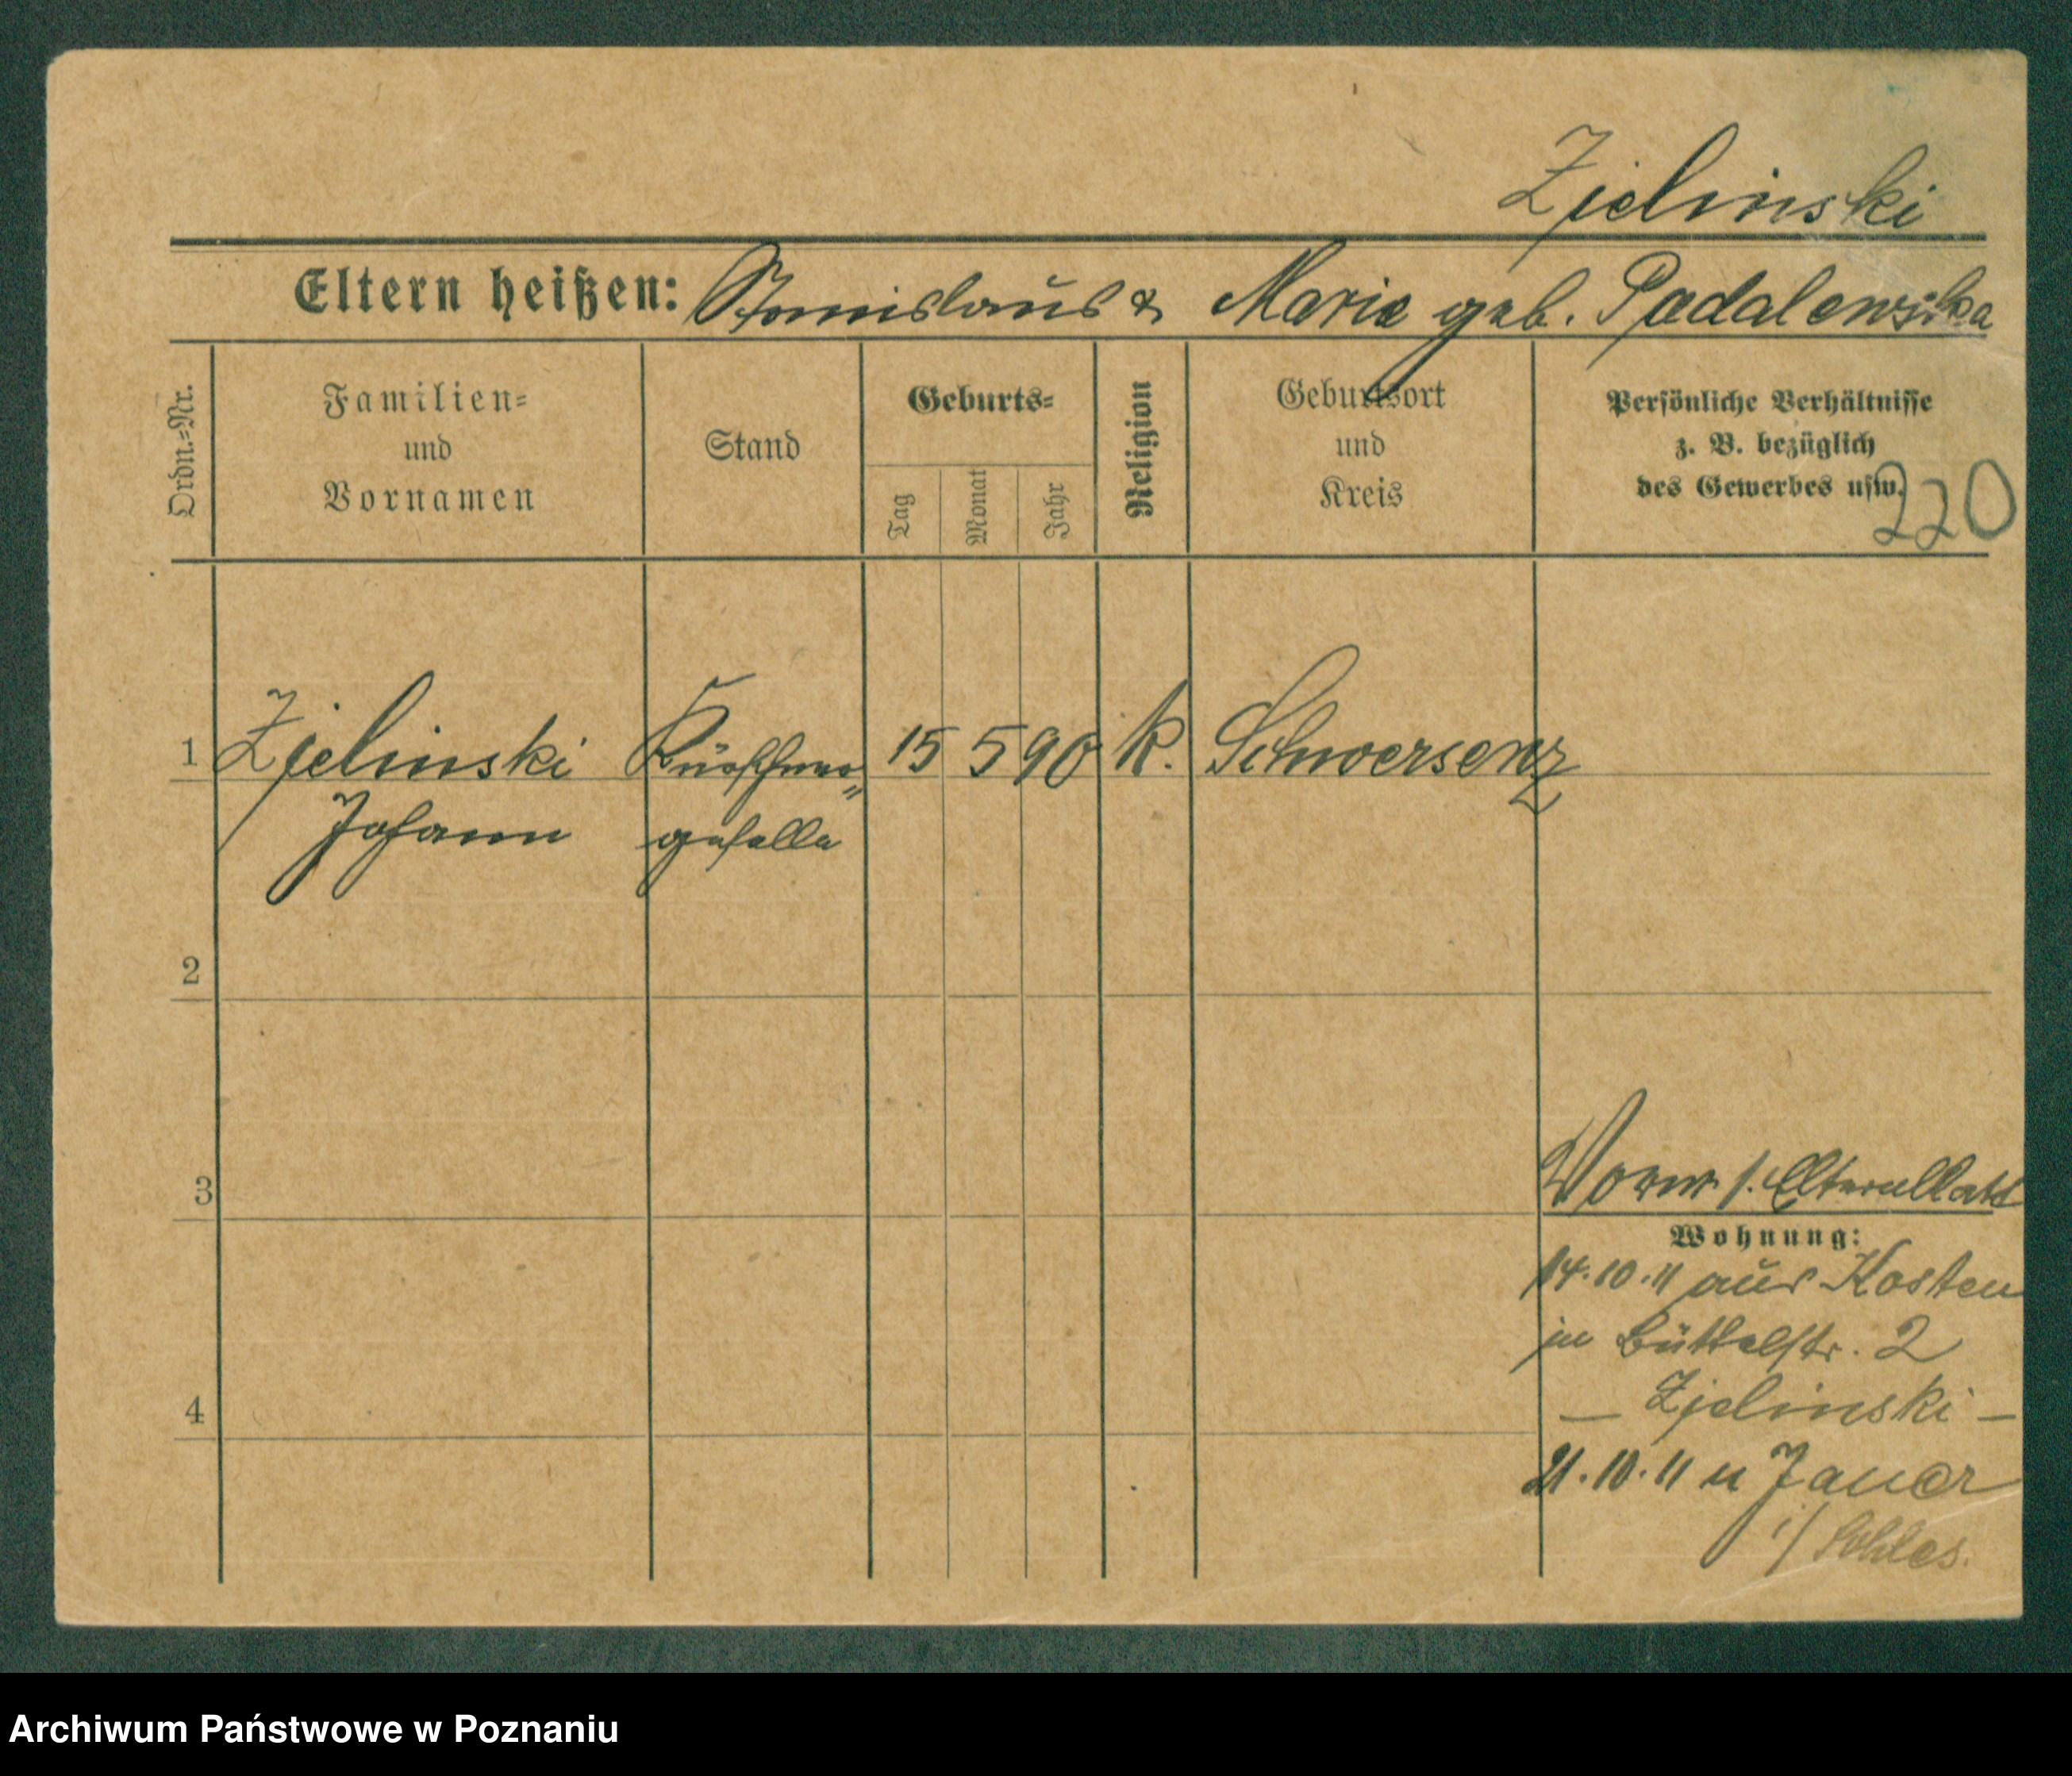 Zielinski
Eltern heißen: Stanislaus & Marie geb. Padalewska
Ordn.=Nr.
Familien=
und
Vornamen
Stand
Geburts=
Tag
Monat
Jahr
Religion
Geburtsort
und
Kreis
Persönliche Verhältnisse
z. B. bezüglich
des Gewerbes usw.
220
1 Zielinski Kürschner= 15 5 90 k. Schwersenz
Johann geselle
2
3
Vorm s. Elternblatt
Wohnung:
14.10.11 aus Kosten
in Büttelstr. 2
— Zielinski —
4
21.10.11 n Jauer
i/ Schles.
Archiwum Państwowe w Poznaniu